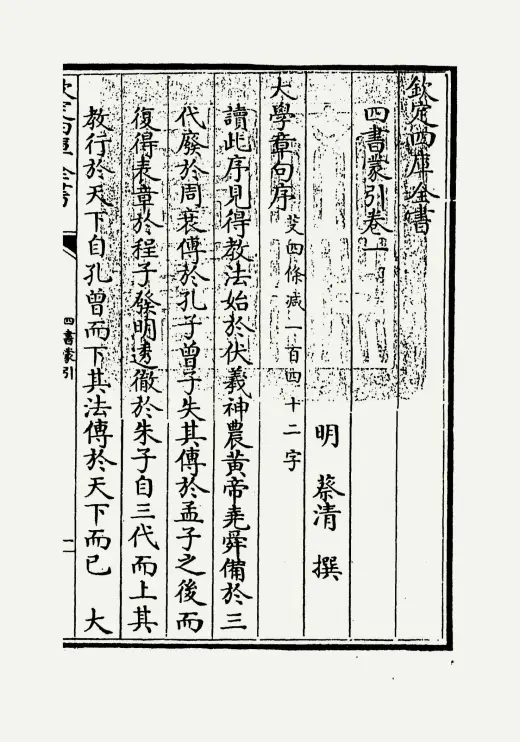 欽定四庫全書
四書蒙引卷一
明 蔡清 撰
大學章句序 芟四條減一百四十二字
讀此序見得教法始於伏羲神農黄帝堯舜備於三
代廢於周衰傳於孔子曾子失其傳於孟子之後而
復得表章於程子發明透徹於朱子自三代而上其
教行於天下自孔曾而下其法傳於天下而已 大
欽定四庫全書
四書蒙引
一